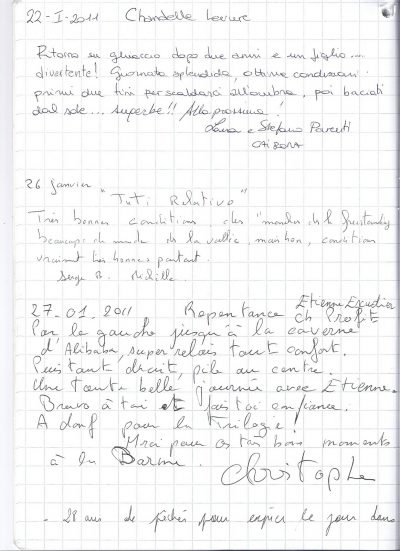 22-I-2011 Chandelle Levure
Ritorno su ghiaccio dopo due anni e un figlio....
divertente! Giornata splendida, ottime condizioni.
primi due tiri per scaldarsi all'ombra, poi baciati
dal sole... superbe!! Alla prossima!
Luisa e Stefano Parenti
26 janvier "Tuti Relativo"
Très bonnes conditions, des
beaucoup de monde de la vallée, mais bon, conditions
vraiment très bonnes partout.
Serge B.
27.01.2011 Repentance Etienne Escudier
Ch Profit
Par la gauche jusqu'à la caverne
d'Alibaba, super relais tout confort.
Puis tout droit, pile au centre.
Une toute belle journée avec Etienne.
Bravo à toi et fais toi confiance.
A donf pour la Trilogie!
Mrci pour ces très bons moments
à la Barme.
Christophe
- 28 ans de péchés pour expier le jour dans